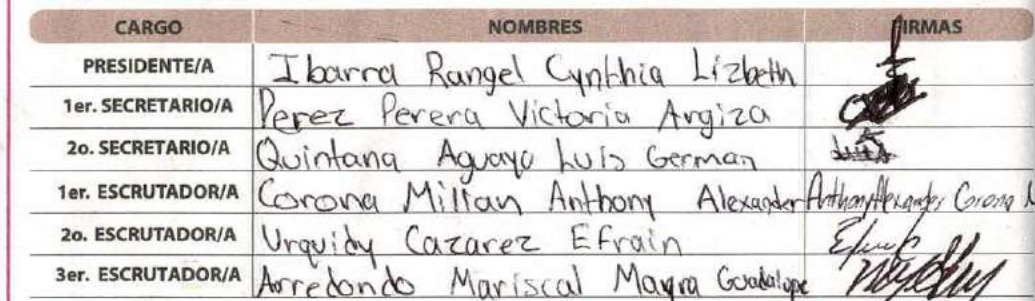 CARGO NOMBRES FIRMAS
PRESIDENTE/A Ibarra Rangel Cynthia Lizbeth
1er. SECRETARIO/A Perez Perera Victoria Argiza
2o. SECRETARIO/A Quintana Aguayo Luis German
1er. ESCRUTADOR/A Corona Millan Anthony Alexander Anthony Alexander Corona
2o. ESCRUTADOR/A Urquidy Cazarez Efrain
3er. ESCRUTADOR/A Arredondo Mariscal Mayra Guadalupe